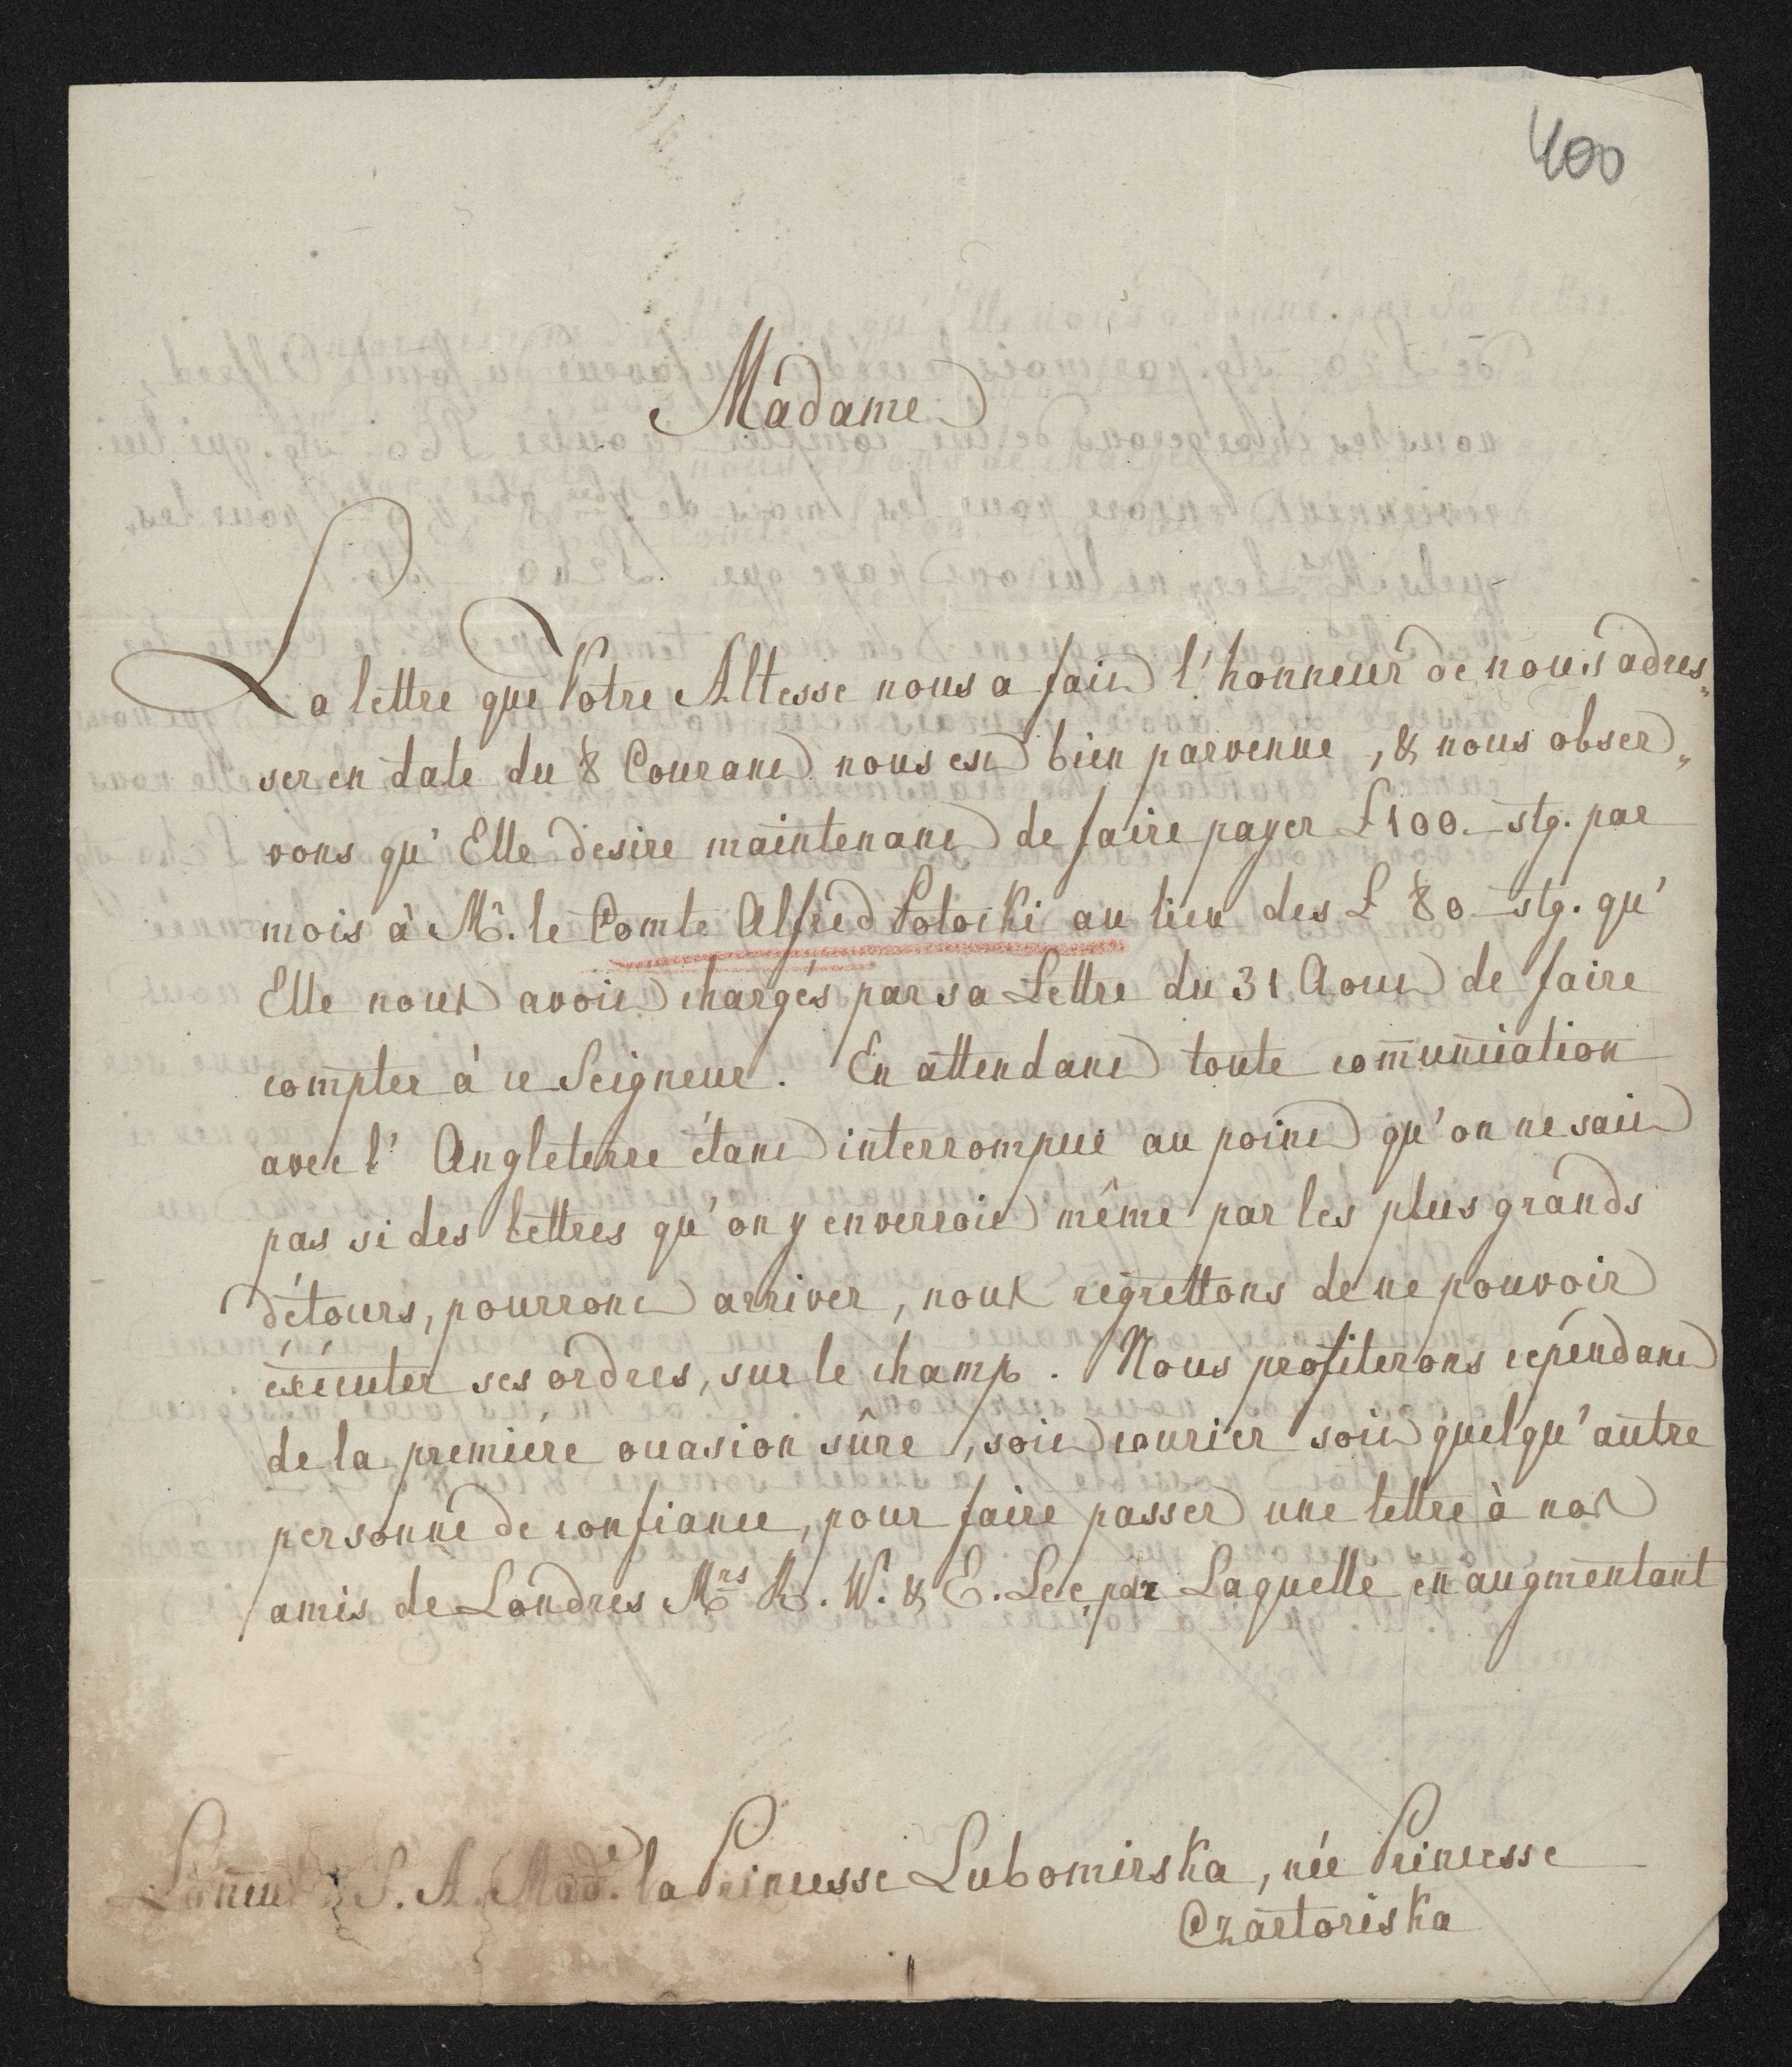 400
Madame
La lettre que Votre Altesse nous a fait l'honneur de nous adres„
ser en date du 8 Courant nous est bien parvenue, & nous obser„
vons qu'Elle desire maintenant de faire payer £ 100.— stg. par
mois à Mr. le Comte Alfred Potocki au lieu des £ 80— stg. qu'
Elle nous avoit chargés par sa Lettre du 31 Aout de faire
compter à ce Seigneur. En attendant toute comunication
avec l'Angleterre étant interrompue au point qu'on ne sait
pas si des lettres qu'on y enverroit même par les plus grands
détours, pourront arriver, nous regrettons de ne pouvoir
éxécuter ses ordres, sur le champ. Nous profiterons cependant
de la premiére occasion sûre, soit courier soit quelqu'autre
personne de confiance, pour faire passer une lettre à nos
amis de Londres Mrs R. W. & E. Lee, par Laquelle en augmentant
S. A. Made. la Princesse Lubomirska, née Princesse
Czartoriska